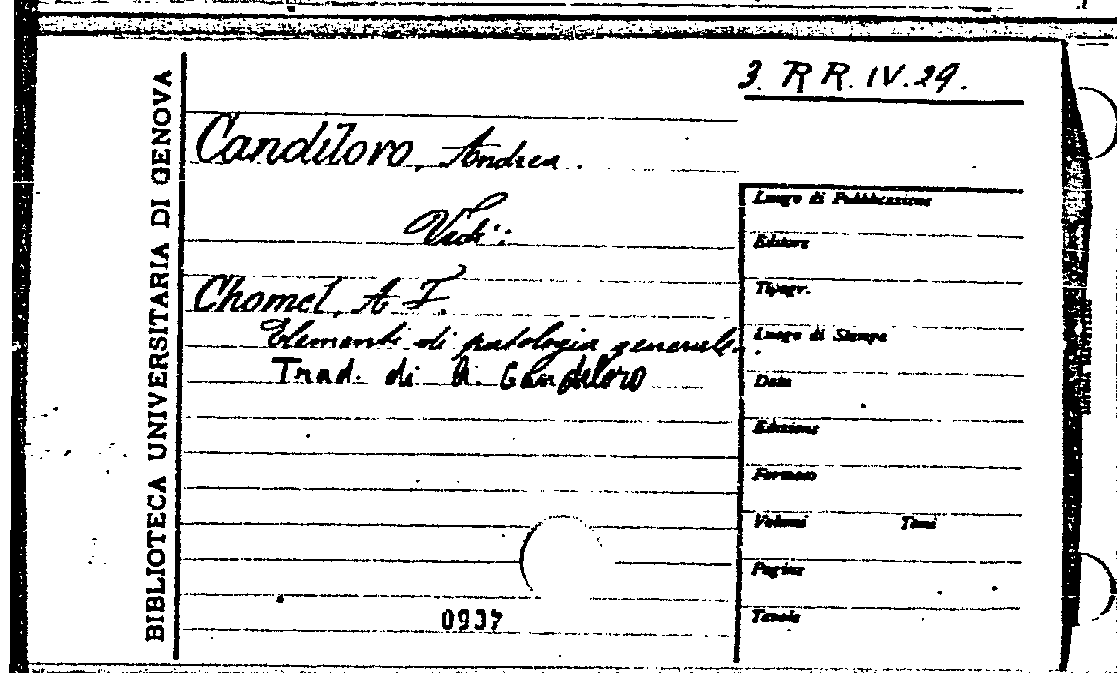 BIBLIOTECA UNIVERSITARIA DI GENOVA
3. R R. IV. 29.
Candiloro, Andrea.
Vedi:
Chomel, A F.
Elementi di patologia generale.
Trad. di A. Candiloro
0937
Luogo di Pubblicazione
Editore
Tipogr.
Luogo di Stampa
Data
Edizione
Formato
Volumi Tomi
Pagine
Tavole